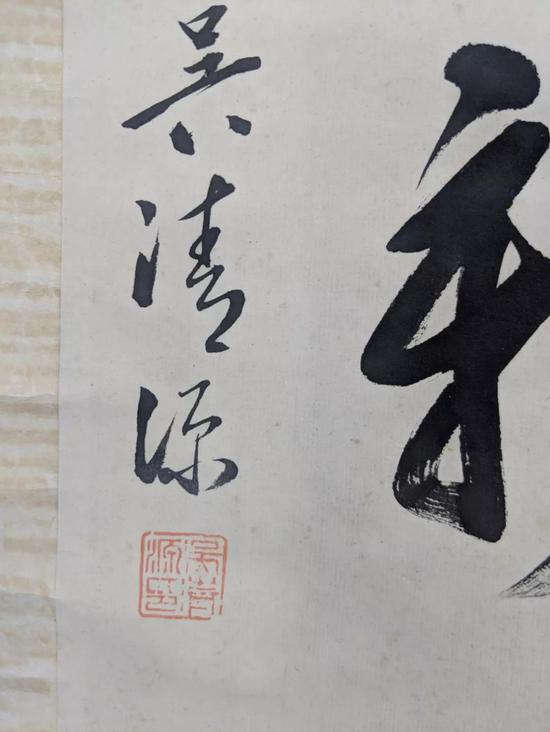 吳清源
吳清源印